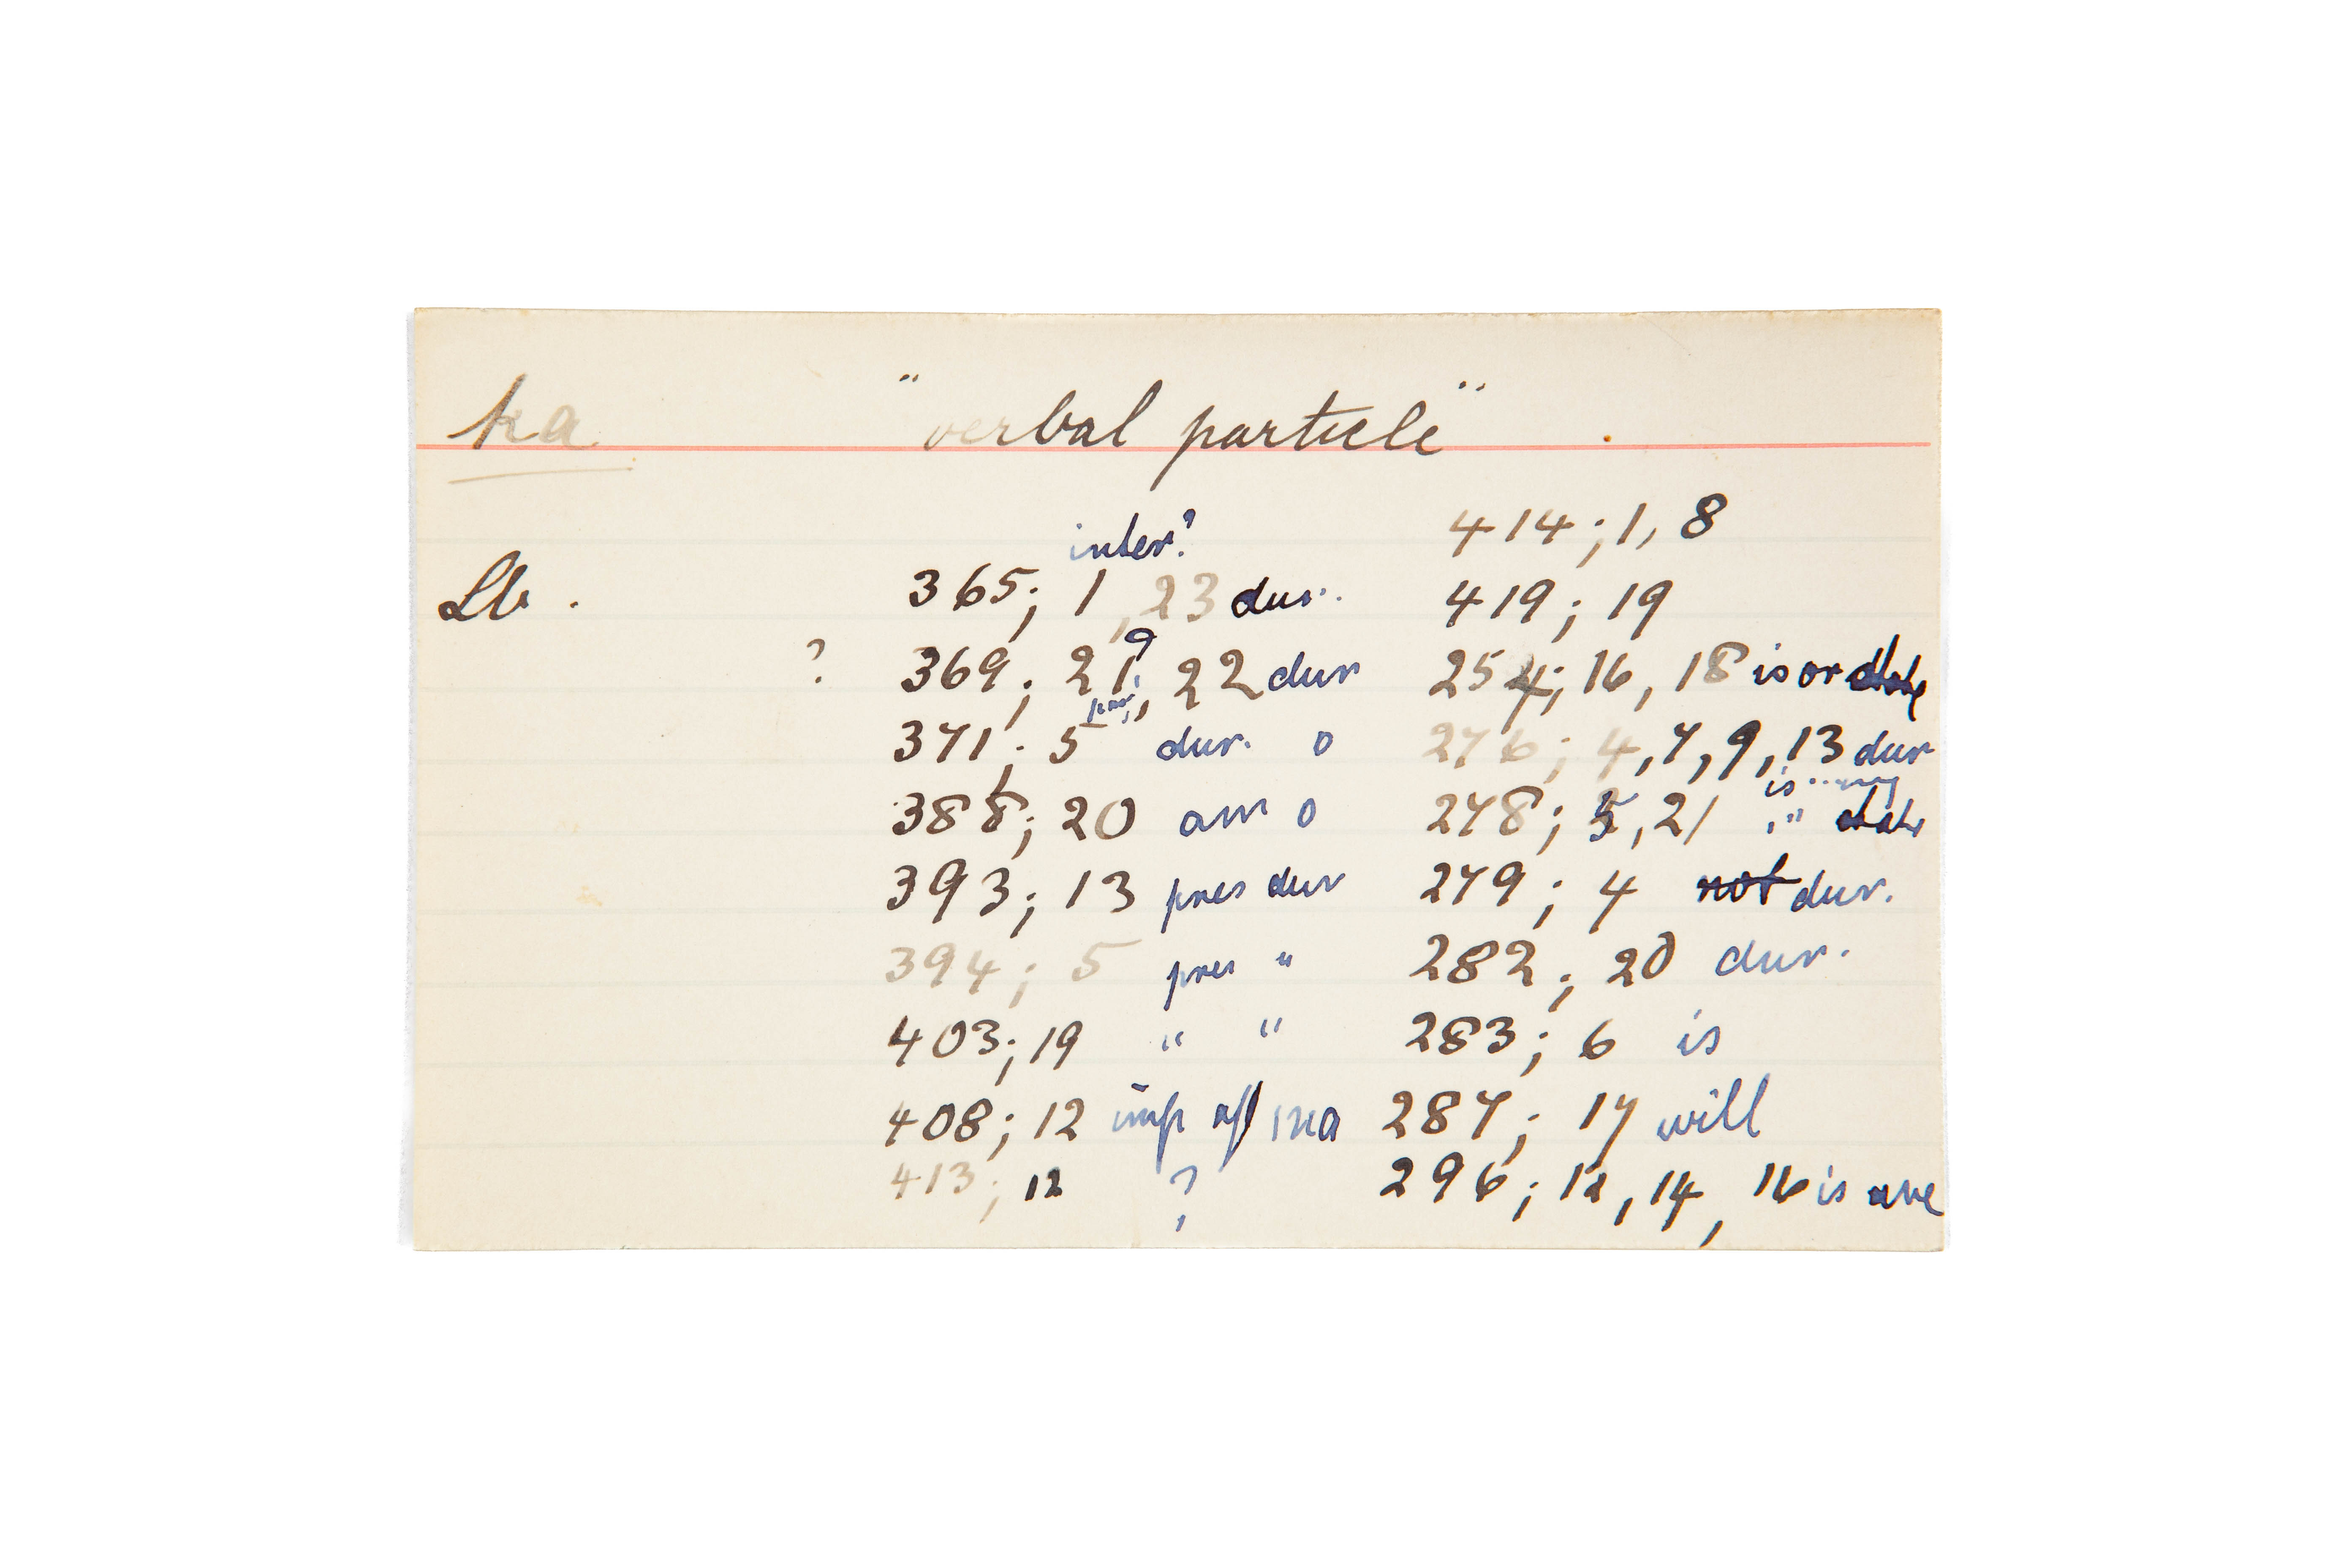 ka "verbal particle"
inter? 414; 1, 8
Lb. 365; 1, 23 dur. 419; 19
? 369; 21, 22 dur 254; 16, 18 is or
371; 5 dur. o 276; 4, 7, 9, 13 dur
388; 20 o 278; 5, 21 is "
393; 13 pres dur 279; 4 not dur.
394; 5 pres " 282; 20 dur.
403; 19 " " 283; 6 is
408; 12 imp 287; 17 will
413; 12 ? 296; 12, 14, 16 is are